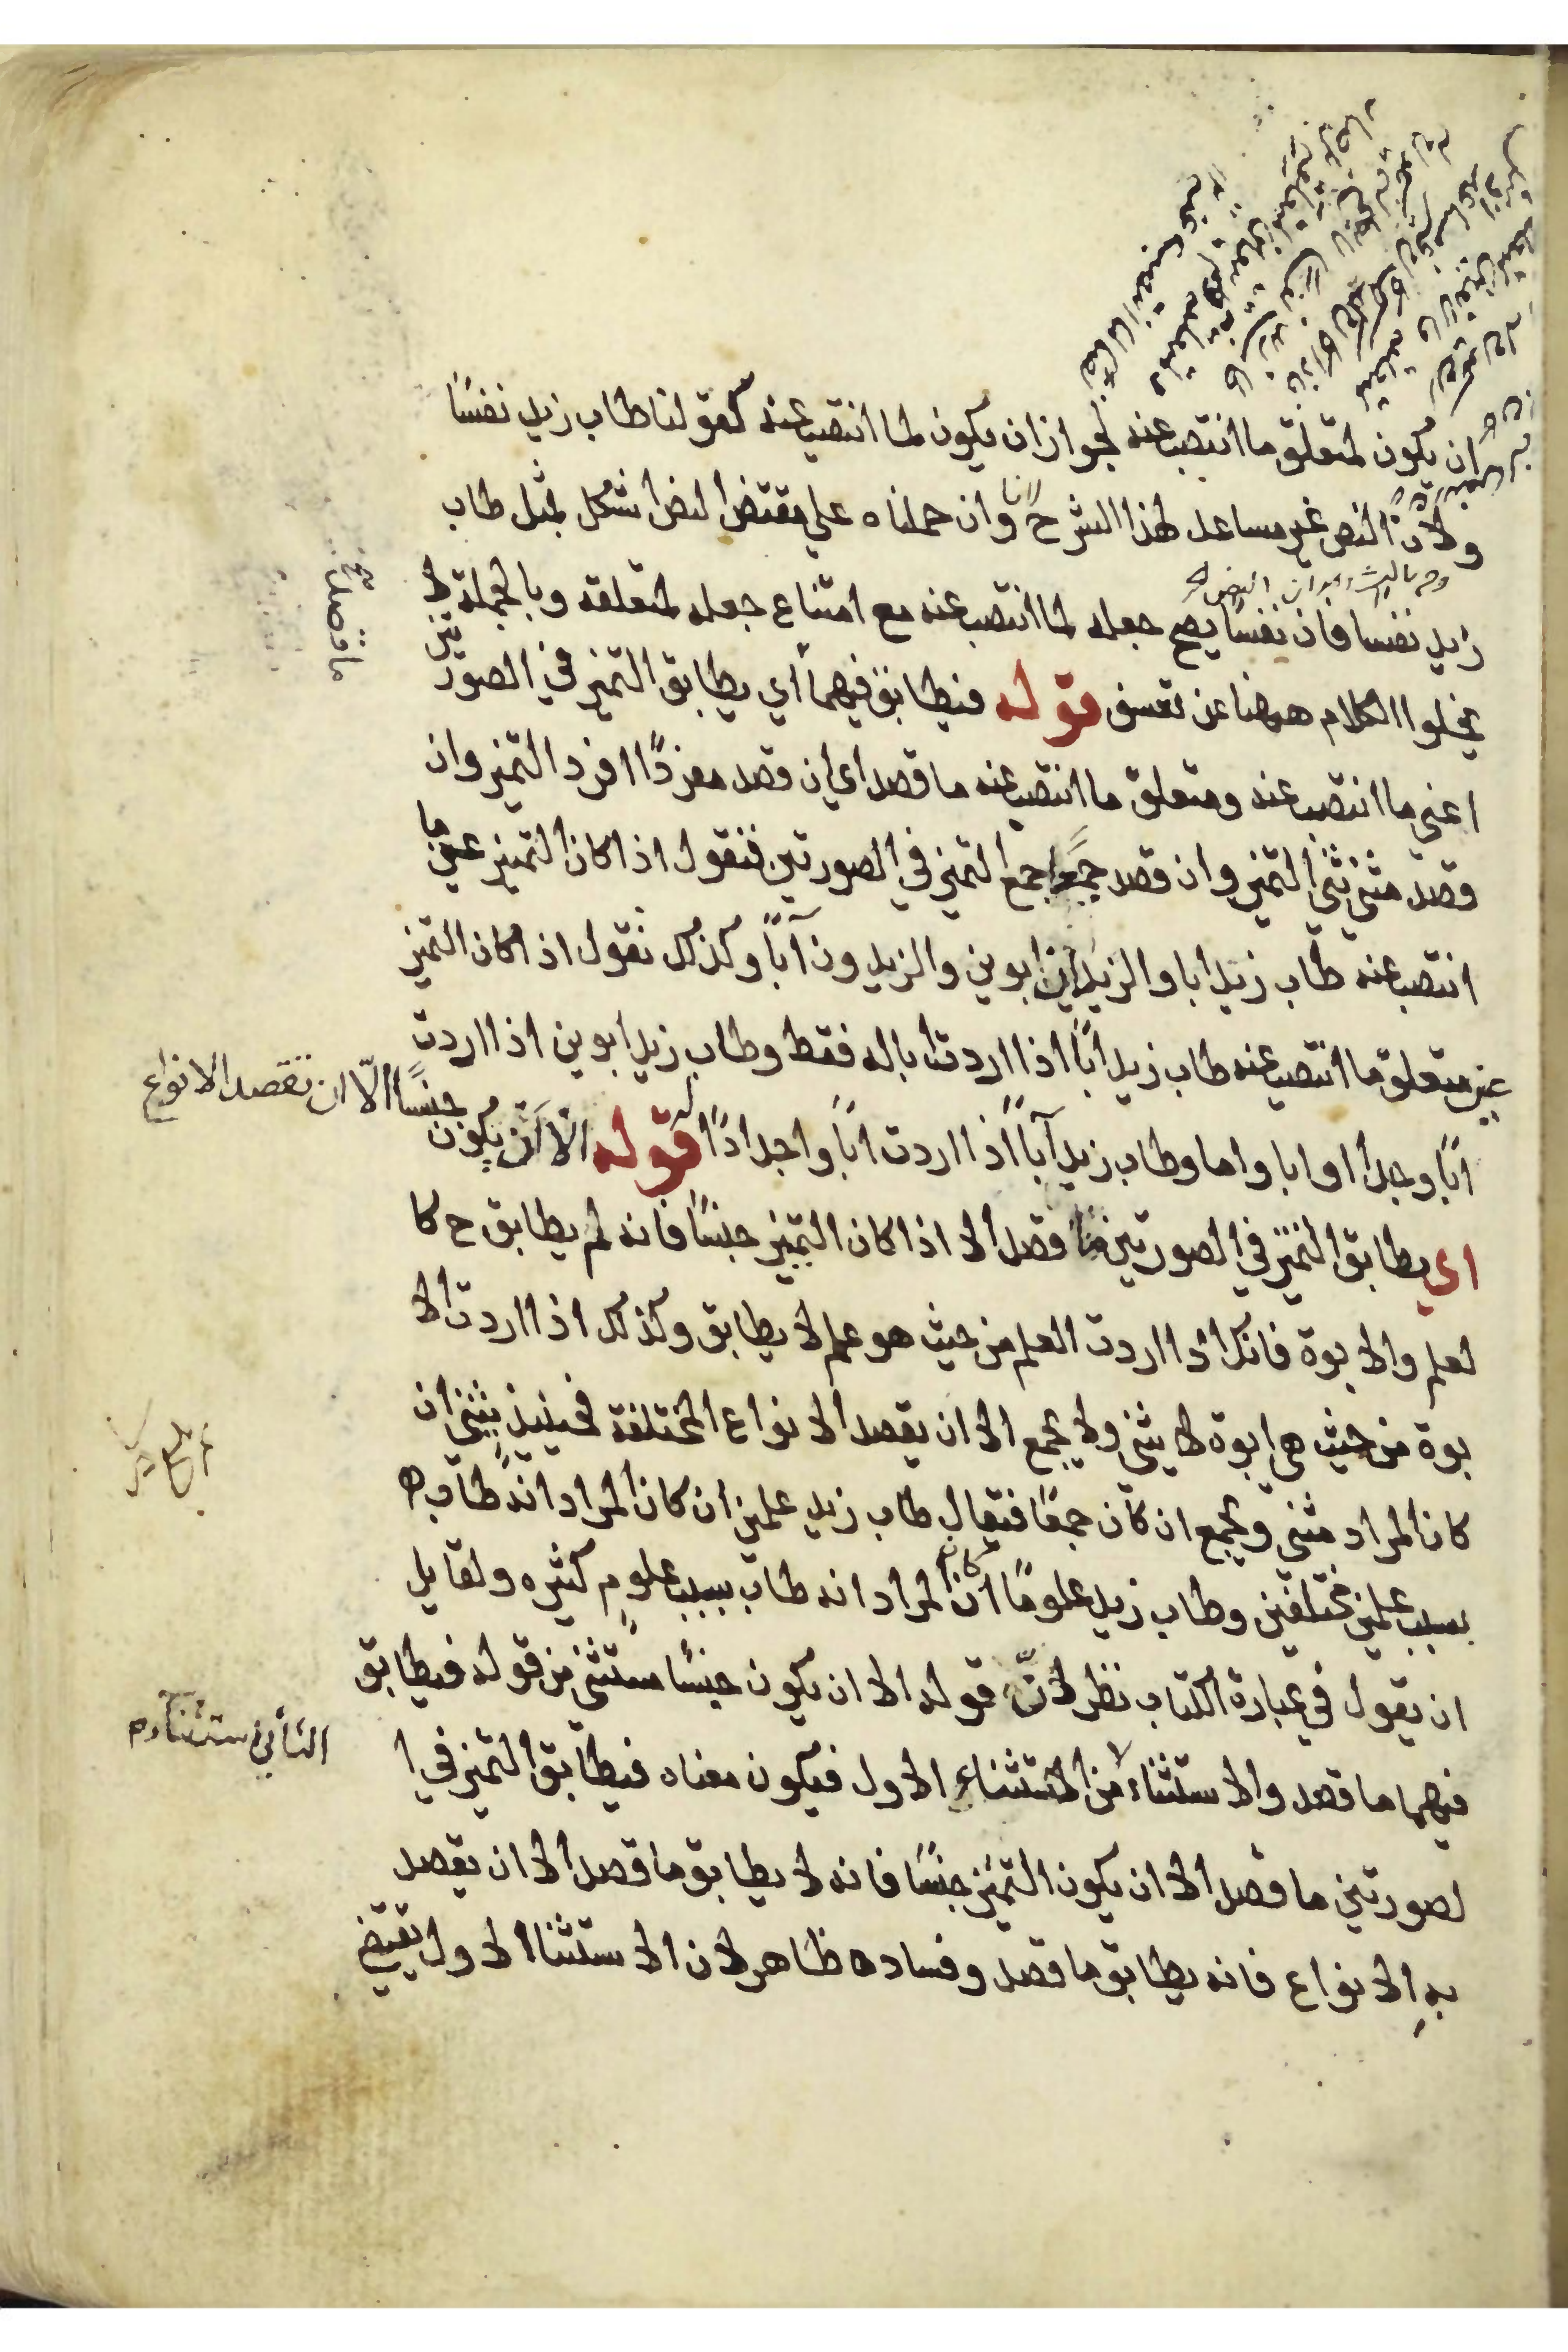 ان يكون لمتعلق ما انتصب عنه لجواز ان يكون لما انتصب عنه كقولنا طاب زيد نفسًا
ولان النص غير مساعد لهذا الشرح وان حملناه على مقتضى النص اشكل بمثل طاب
زيد نفسا فان نفسًا يصح جعله لما انتصب عنه مع امتناع جعله لمتعلقه وبالجملة لا
يخلوا الكلام ههنا عن تعسف قوله فيطابق فيهما أي يطابق التميز في الصورتين
اعني ما انتصب عنه ومتعلق ما انتصب عنه ما قصد اي ان قصد مفردًا افرد التميز وان
قصد مثنى ثنى التميز وان قصد جمعًا جمع التميز في الصورتين فنقول اذا كان التميز عن ما
انتصب عنه طاب زيد ابا والزيدان ابوين والزيدون آباً وكذلك نقول اذا كان التميز
عن متعلق ما انتصب عنه طاب زيد اباً اذا اردت ابا له فقط وطاب زيد ابوين اذا اردت
اباً وجدا او ابا واما وطاب زيد آباً اذا اردت اباً واجدادًا قوله الا ان يكون
جنسًا الّا ان تقصد الانواع
اي يطابق التميز في الصورتين ما قصد الا اذا كان التميز جنسًا فانه لم يطابق ح كا
لعلم والابوة فانك اذا اردت العلم من حيث هو علم لا يطابق وكذلك اذا اردت الا
بوة من حيث هي ابوة لا يثنى ولا يجمع الا ان يقصد الانواع المختلفة فحينئذٍ يثنى ان
كان المراد مثنى ويجمع ان كان جمعًا فيقال طاب زيد علمين ان كان المراد انه طاب
بسبب علمين مختلفين وطاب زيد علومًا ان كان المراد انه طاب بسبب علومٍ كثيره ولقايل
ان يقول في عبارة الكتاب نظر لانّ قوله الا ان يكون جنسًا مستثنى من قوله فيطابق
فيهما ما قصد والاستثناء من الاستثناء الاول فيكون معناه فيطابق التميز في ا
لصورتين ما قصد الا ان يكون التميز جنسًا فانه لا يطابق ما قصد الا ان يقصد
بهِ الانواع فانه يطابق ما قصد وفساده ظاهر لان الاستثنا الاول يقتضي
ما قصد
الثاني استثناء